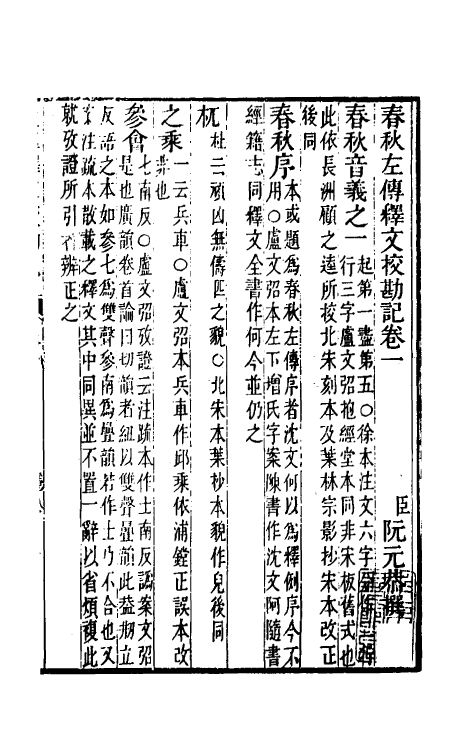 春秋左傳釋文校勘記卷一
臣阮元恭撰
春秋音義之一起第一盡第五○徐本注文六字
行三字盧文弨抱經堂本同非宋板舊式也
此依長洲顧之逵所校北宋刻本及葉林宗影抄宋本改正
後同
春秋序本或題爲春秋左傳序者沈文何以爲釋例序今不
用○盧文弨本左下增氏字案陳書作沈文阿隨書
經籍志同釋文全書作何今並仍之
杌檮杌頑凶無儔匹之貌○北宋本葉抄本貌作皃後同
之乘一云兵車○盧文弨本兵車作邱乘依浦鏜正誤本改
非也
參會七南反○盧文弨攷證云注疏本作士南反譌案文弨
是也廣韻卷首論曰切韻者紐以雙聲疊韻此蓋刱立
反語之本如參七爲雙聲參南爲疊韻若作士乃不合也又
案注疏本散載之釋文其中同異並不置一辭以省煩複此
就攷證所引者辨正之